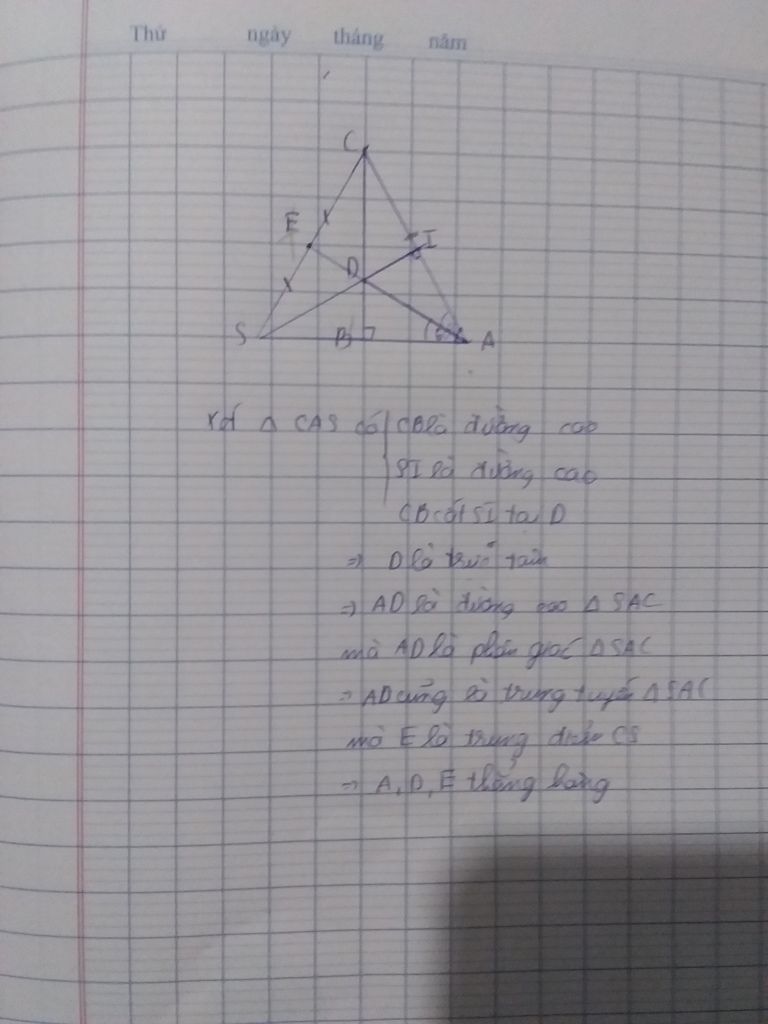 Thứ ngày tháng năm
C
E
I
D
S
B
A
Xét Δ CAS có CB là đường cao
SI là đường cao
CB cắt SI tại D
=> D là trực tâm
=> AD là đường cao Δ SAC
mà AD là phân giác Δ SAC
=> AD cũng là trung tuyến Δ SAC
mà E là trung điểm CS
=> A, D, E thẳng hàng